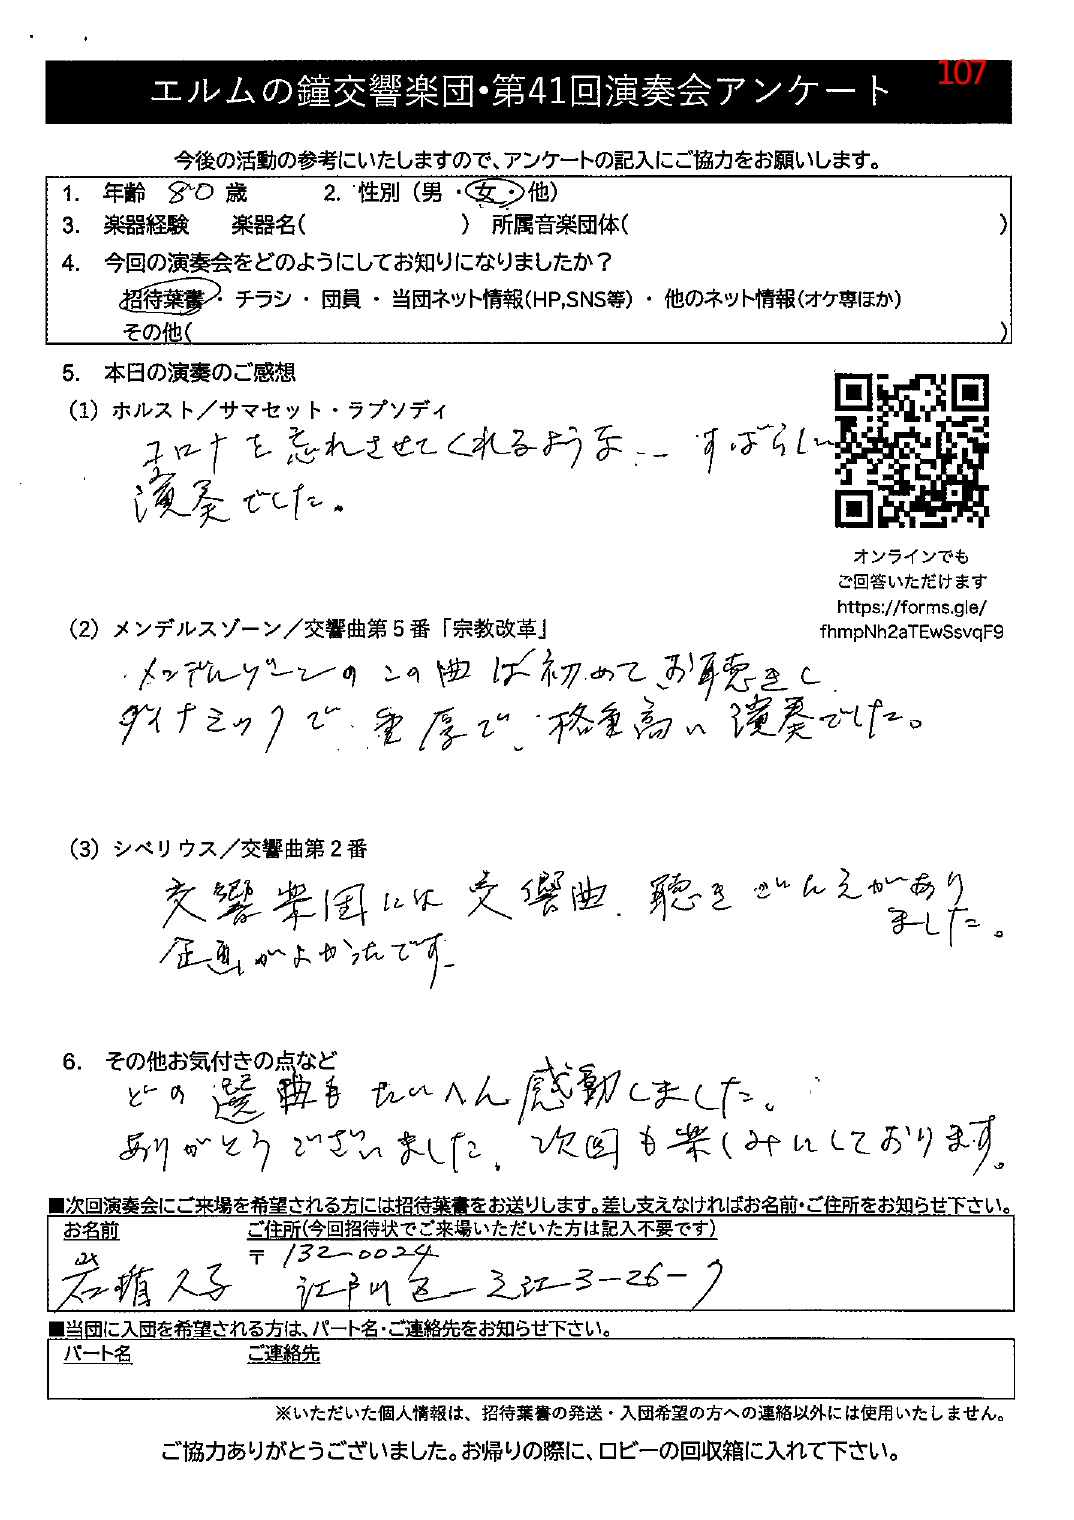 107
エルムの鐘交響楽団・第41回演奏会アンケート
今後の活動の参考にいたしますので、アンケートの記入にご協力をお願いします。
1. 年齢 80 歳 2. 性別（男・女・他）
3. 楽器経験 楽器名( ) 所属音楽団体( )
4. 今回の演奏会をどのようにしてお知りになりましたか？
招待葉書・チラシ・団員・当団ネット情報(HP,SNS等)・他のネット情報(オケ専ほか)
その他( )
5. 本日の演奏のご感想
(1) ホルスト／サマセット・ラプソディ
コロナを忘れさせてくれるような… すばらしい
演奏でした。
オンラインでも
ご回答いただけます
https://forms.gle/
fhmpNh2aTEwSsvqF9
(2) メンデルスゾーン／交響曲第５番「宗教改革」
メンデルゾーンのこの曲は初めてお聴きし
ダイナミックで、重厚で、格重高い演奏でした。
(3) シベリウス／交響曲第２番
交響楽団には交響曲、聴きごたえがあり
ました。
企画がよかったです。
6. その他お気付きの点など
どの選曲もたいへん感動しました。
ありがとうございました。次回も楽しみにしております。
■次回演奏会にご来場を希望される方には招待葉書をお送りします。差し支えなければお名前・ご住所をお知らせ下さい。
お名前 ご住所(今回招待状でご来場いただいた方は記入不要です)
〒132-0024
久子 江戸川区一之江3-26-7
■当団に入団を希望される方は、パート名・ご連絡先をお知らせ下さい。
パート名 ご連絡先
※いただいた個人情報は、招待葉書の発送・入団希望の方への連絡以外には使用いたしません。
ご協力ありがとうございました。お帰りの際に、ロビーの回収箱に入れて下さい。